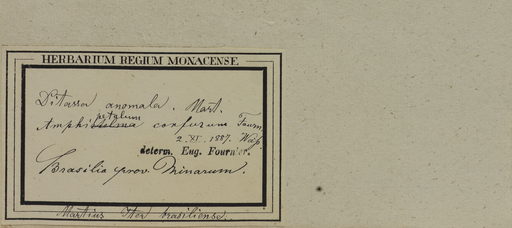 HERBARIUM REGIUM MONACENSE.
Ditassa anomala. Mart.
petalum
Amphi confusum Fourn.
2. XI. 1887.
determ. Eug. Fournier.
Brasilia prov. Minarum.
Martius Iter brasiliense.